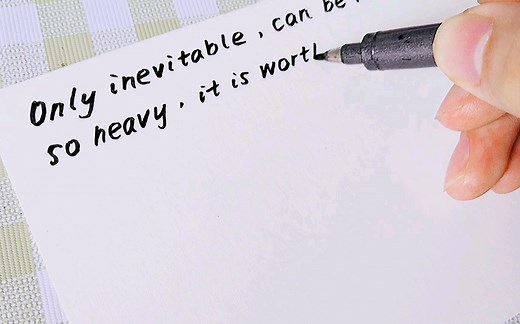 Only inevitable, can be
so heavy, it is wort